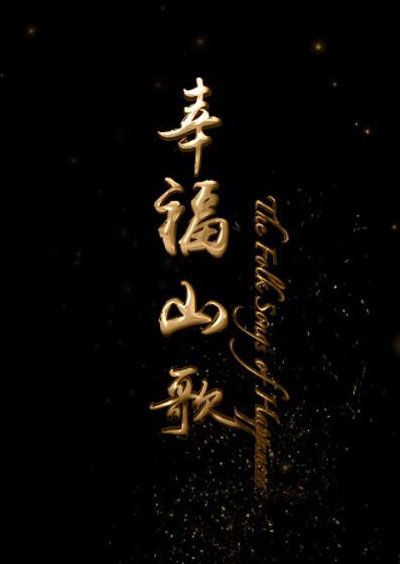 幸福山歌
The Folk Songs of Happiness